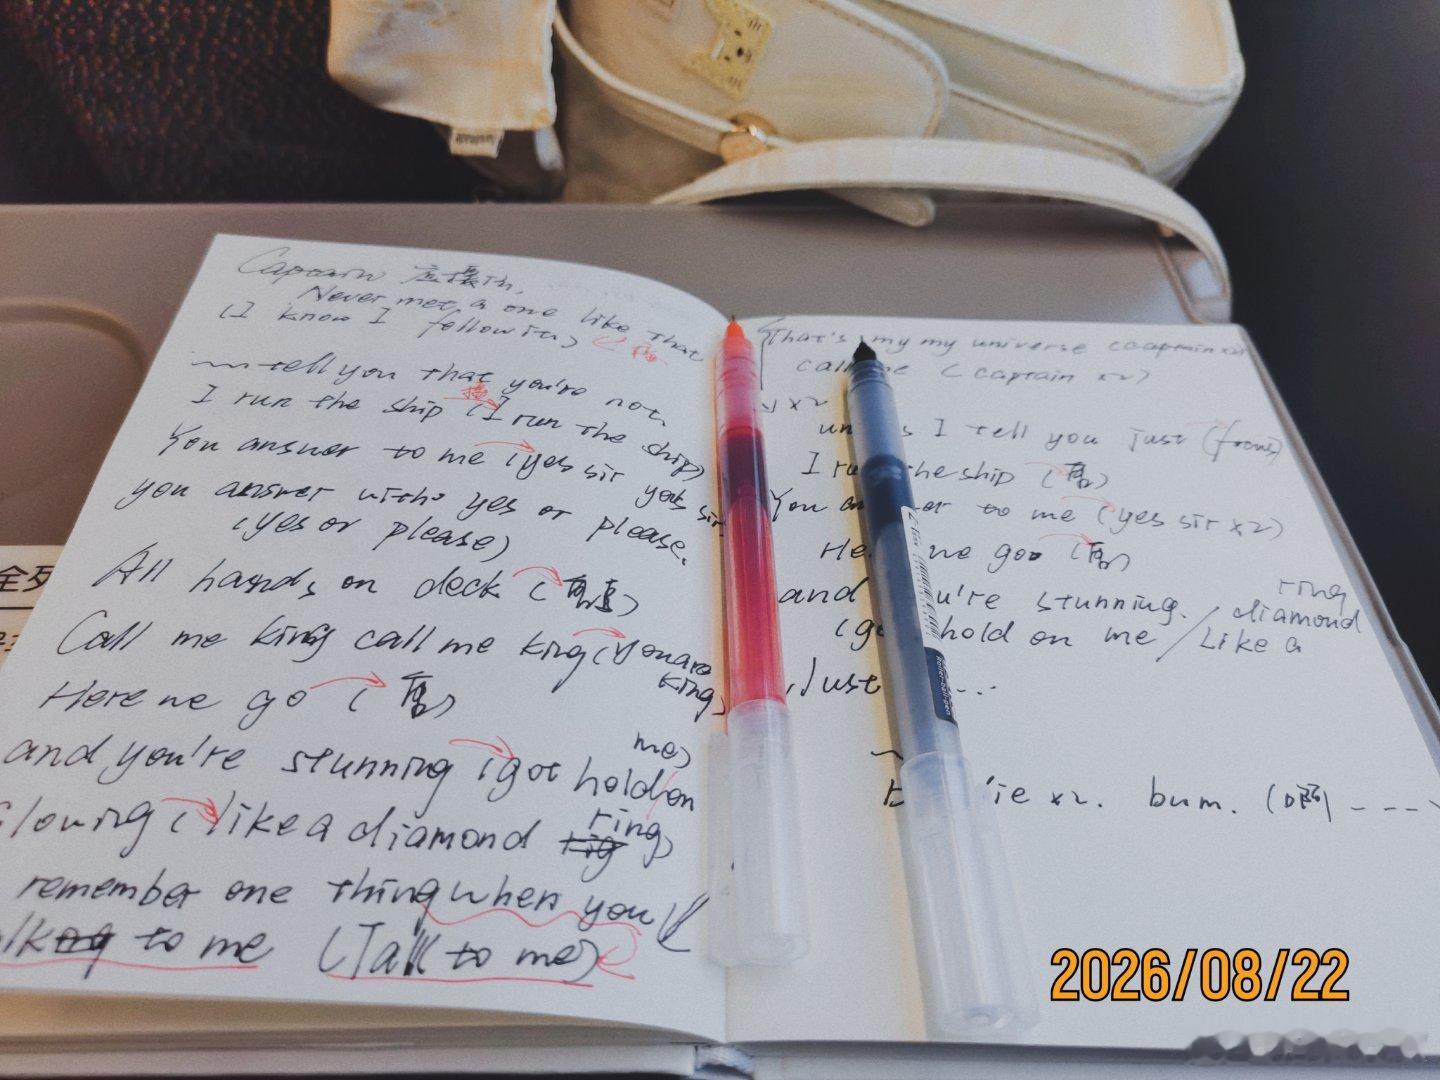 Captain 应援th,
Never met a one like that
(I know I follow it)
tell you that you're not
I run the ship (I run the ship)
You answer to me (yes sir yes sir
you answer with yes or please.
(yes or please)
All hands on deck (
Call me king call me king (you are king)
Here we go (高)
and you're stunning (got hold on me)
Glowing (like a diamond ring)
remember one thing when you
to me (Talk to me)
That's my my universe captain x2
call me (captain x2)
x2
I tell you just (focus)
I ru the ship (高)
You an er to me (yes sir x2)
He we go (高)
and u're stunning. / diamond ring
(go hold on me / Like a
Just ...
ie x2. bum. (啊 ----
全列
2026/08/22